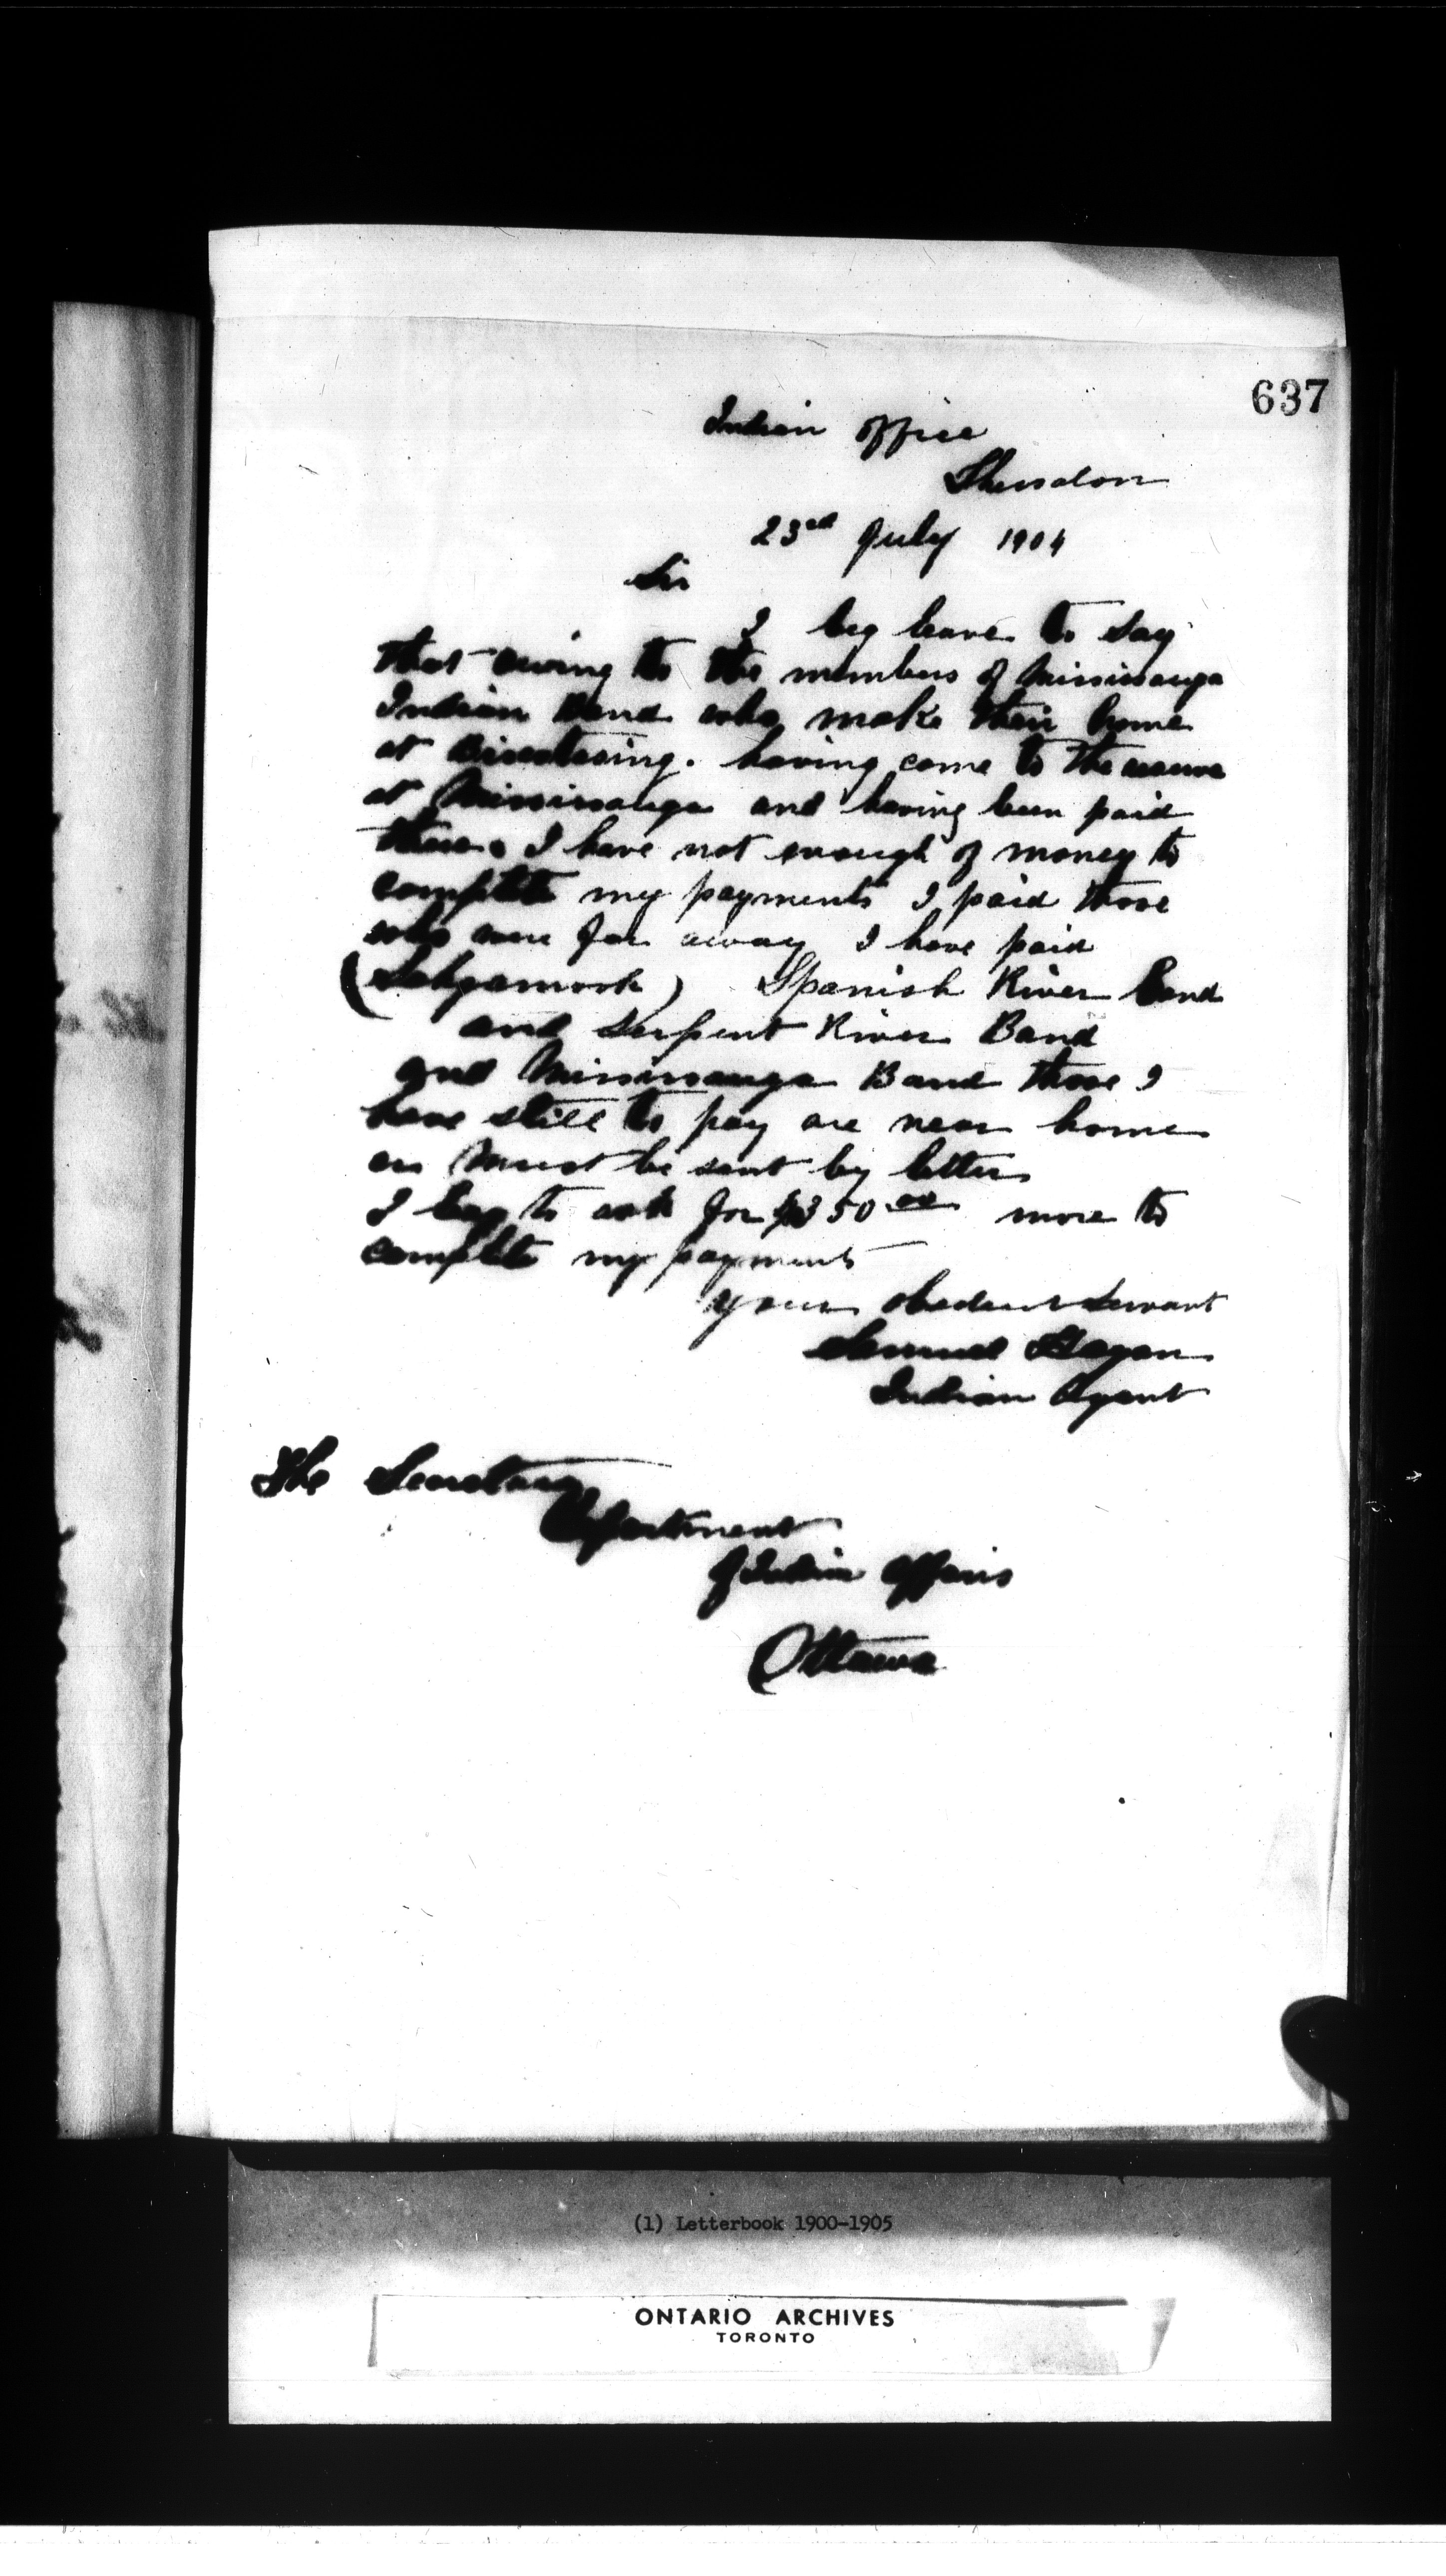 637
Indian Office
Thessalon
23rd July 1904
Sir
I beg leave to say
that owing to the members of Mississauga
Indian Band who make their home
at Biscotasing. having come to the reserve
at Mississauga and having been paid
there. I have not enough of money to
complete my payments I paid those
who were far away I have paid
(Sahgamook) Spanish River Band
and Serpent River Band
and Mississauga Band those I
have still to pay are near home
or must be sent by letter
I beg to ask for $350 00 more to
complete my payments
Your obedient Servant
Samuel Hagan
Indian Agent
The Secretary
Department
of Indian Affairs
Ottawa
(1) Letterbook 1900-1905
ONTARIO ARCHIVES
TORONTO